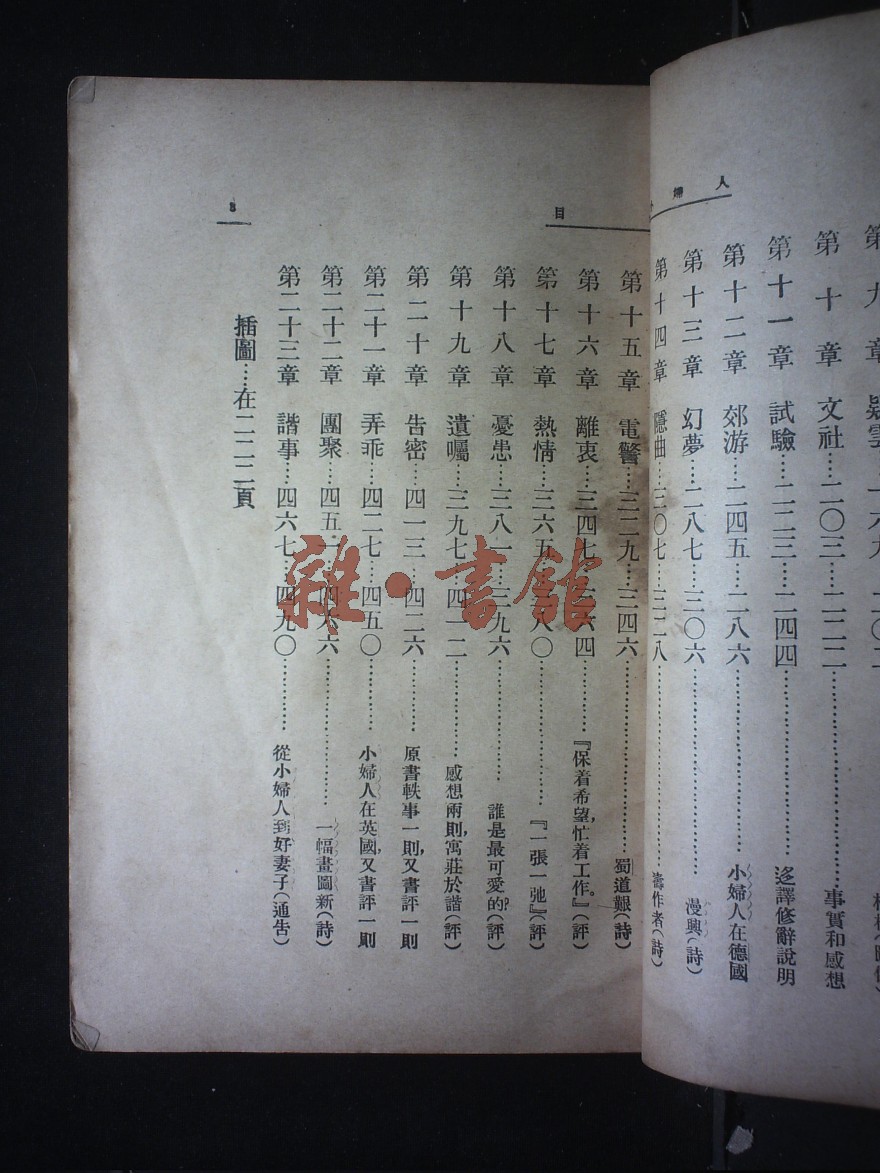 人
婦
第九章
第十章 文社……二〇三……二二二……事實和感想
第十一章 試驗……二二三……二四四……迻譯修辭說明
第十二章 郊游……二四五……二八六……小婦人在德國
第十三章 幻夢……二八七……三〇六……漫興(詩)
第十四章 隱曲……三〇七……三二八……壽作者(詩)
目
3
第十五章 電警……三二九……三四六……蜀道艱(詩)
第十六章 離衷……三四七……三六四……『保着希望,忙着工作。』(評)
第十七章 熱情……三六五……三八〇……『一張一弛』(評)
第十八章 憂患……三八一……三九六……誰是最可愛的?(評)
第十九章 遺囑……三九七……四一二……感想兩則,寓莊於諧(評)
第二十章 告密……四一三……四二六……原書軼事一則,又書評一則
第二十一章 弄乖……四二七……四五〇……小婦人在英國,又書評一則
第二十二章 團聚……四五一……四六六……一幅畫圖新(詩)
第二十三章 諧事……四六七……四九〇……從小婦人到好妻子(通告)
插圖……在二二二頁
雜·書館